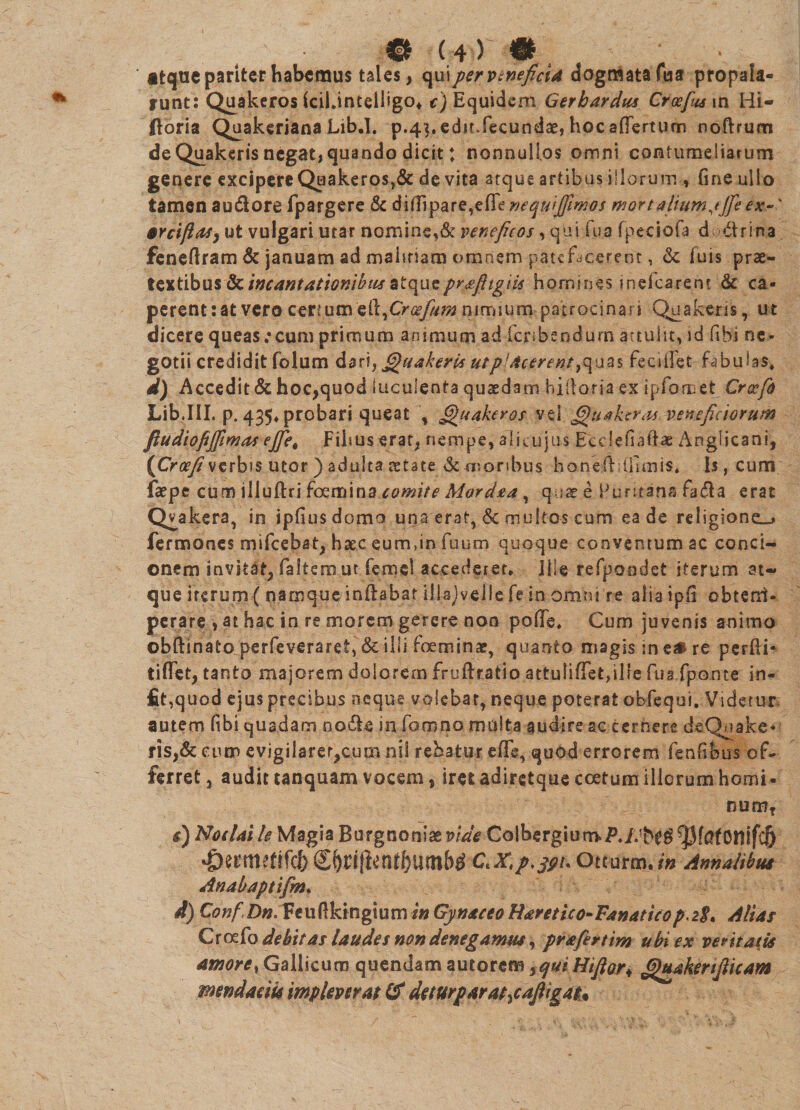 (4)
atque pariter habemus tales, qui per veneficia dogmata sua propala-
runt: Quakeros scil. intelligo. c) Equidem Gerhardus Crœsus in Hi-
storia Quakeriana Lib.I. p.43. edit. secundæ, hoc assertum nostrum
de Quakeris negat, quando dicit: nonnullos omni contumeliarum
genere excipere Quakeros, & de vita atque artibus illorum, sine ullo
tamen auctore spargere & dissipare, esse nequissimos mortalium, esse ex-
orcistas, ut vulgari utar nomine, & veneficos, qui sua speciosa doctrina
fenestram & januam ad malitiam omnem patefacerent, & suis præ-
textibus & incantationibus atque præstigiis homines inescarent & ca-
perent: at vero certum est, Crœsum nimium patrocinari Quakeris, ut
dicere queas: cum primum animum ad scribendum attulit, id sibi ne-
gotii credidit solum dari, Quakeris ut placerent, quas fecisset fabulas.
d) Accedit & hoc, quod luculenta quædam historia ex ipsomet Crœso
Lib.III. p. 435. probari queat, Quakeros vel Quakeras veneficiorum
studiosissimas esse. Filius erat, nempe, alicujus Ecclesiastæ Anglicani,
(Crœsi verbis utor) adulta ætate & moribus honestissimis. Is, cum
sæpe cum illustri fœmina comite Mordea, quæ è Puritana facta erat
Qvakera, in ipsius domo una erat, & multos cum ea de religione
sermones miscebat, hæc eum, in suum quoque conventum ac conci-
onem invitat, saltem ut semel accederet. Ille respondet iterum at-
que iterum (namque instabat illa) velle se in omni re alia ipsi obtem-
perare, at hac in re morem gerere non posse. Cum juvenis animo
obstinato perseveraret, & illi fœminæ, quanto magis in ea re persti-
tisset, tanto majorem dolorem frustratio attulisset, ille sua sponte in-
sit, quod ejus precibus neque volebat, neque poterat obsequi. Videtur
autem sibi quadam nocte in somno multa audire ac cernere de Quake-
ris, & cum evigilaret, cum nil rebatur esse, quod errorem sensibus of-
ferret, audit tanquam vocem, iret adiretque cœtum illorum homi-
num,
c) Noclai le Magia Burgnoniæ vide Colbergium P.I. des Platonisch
Hermetisch Christenthumbs C.X. p. 391. Ottorm. in Annalibus
Anabaptism.
d) Conf. Dn. Feustkingium in Gynaceo Hæretico-Fanatico p.28. Alias
Crœso debitas laudes non denegamus, præsertim ubi ex veritatis
amore, Gallicum quendam autorem, qui Histor. Quakeristicam
mendaciis impleverat & deturparat, castigat.